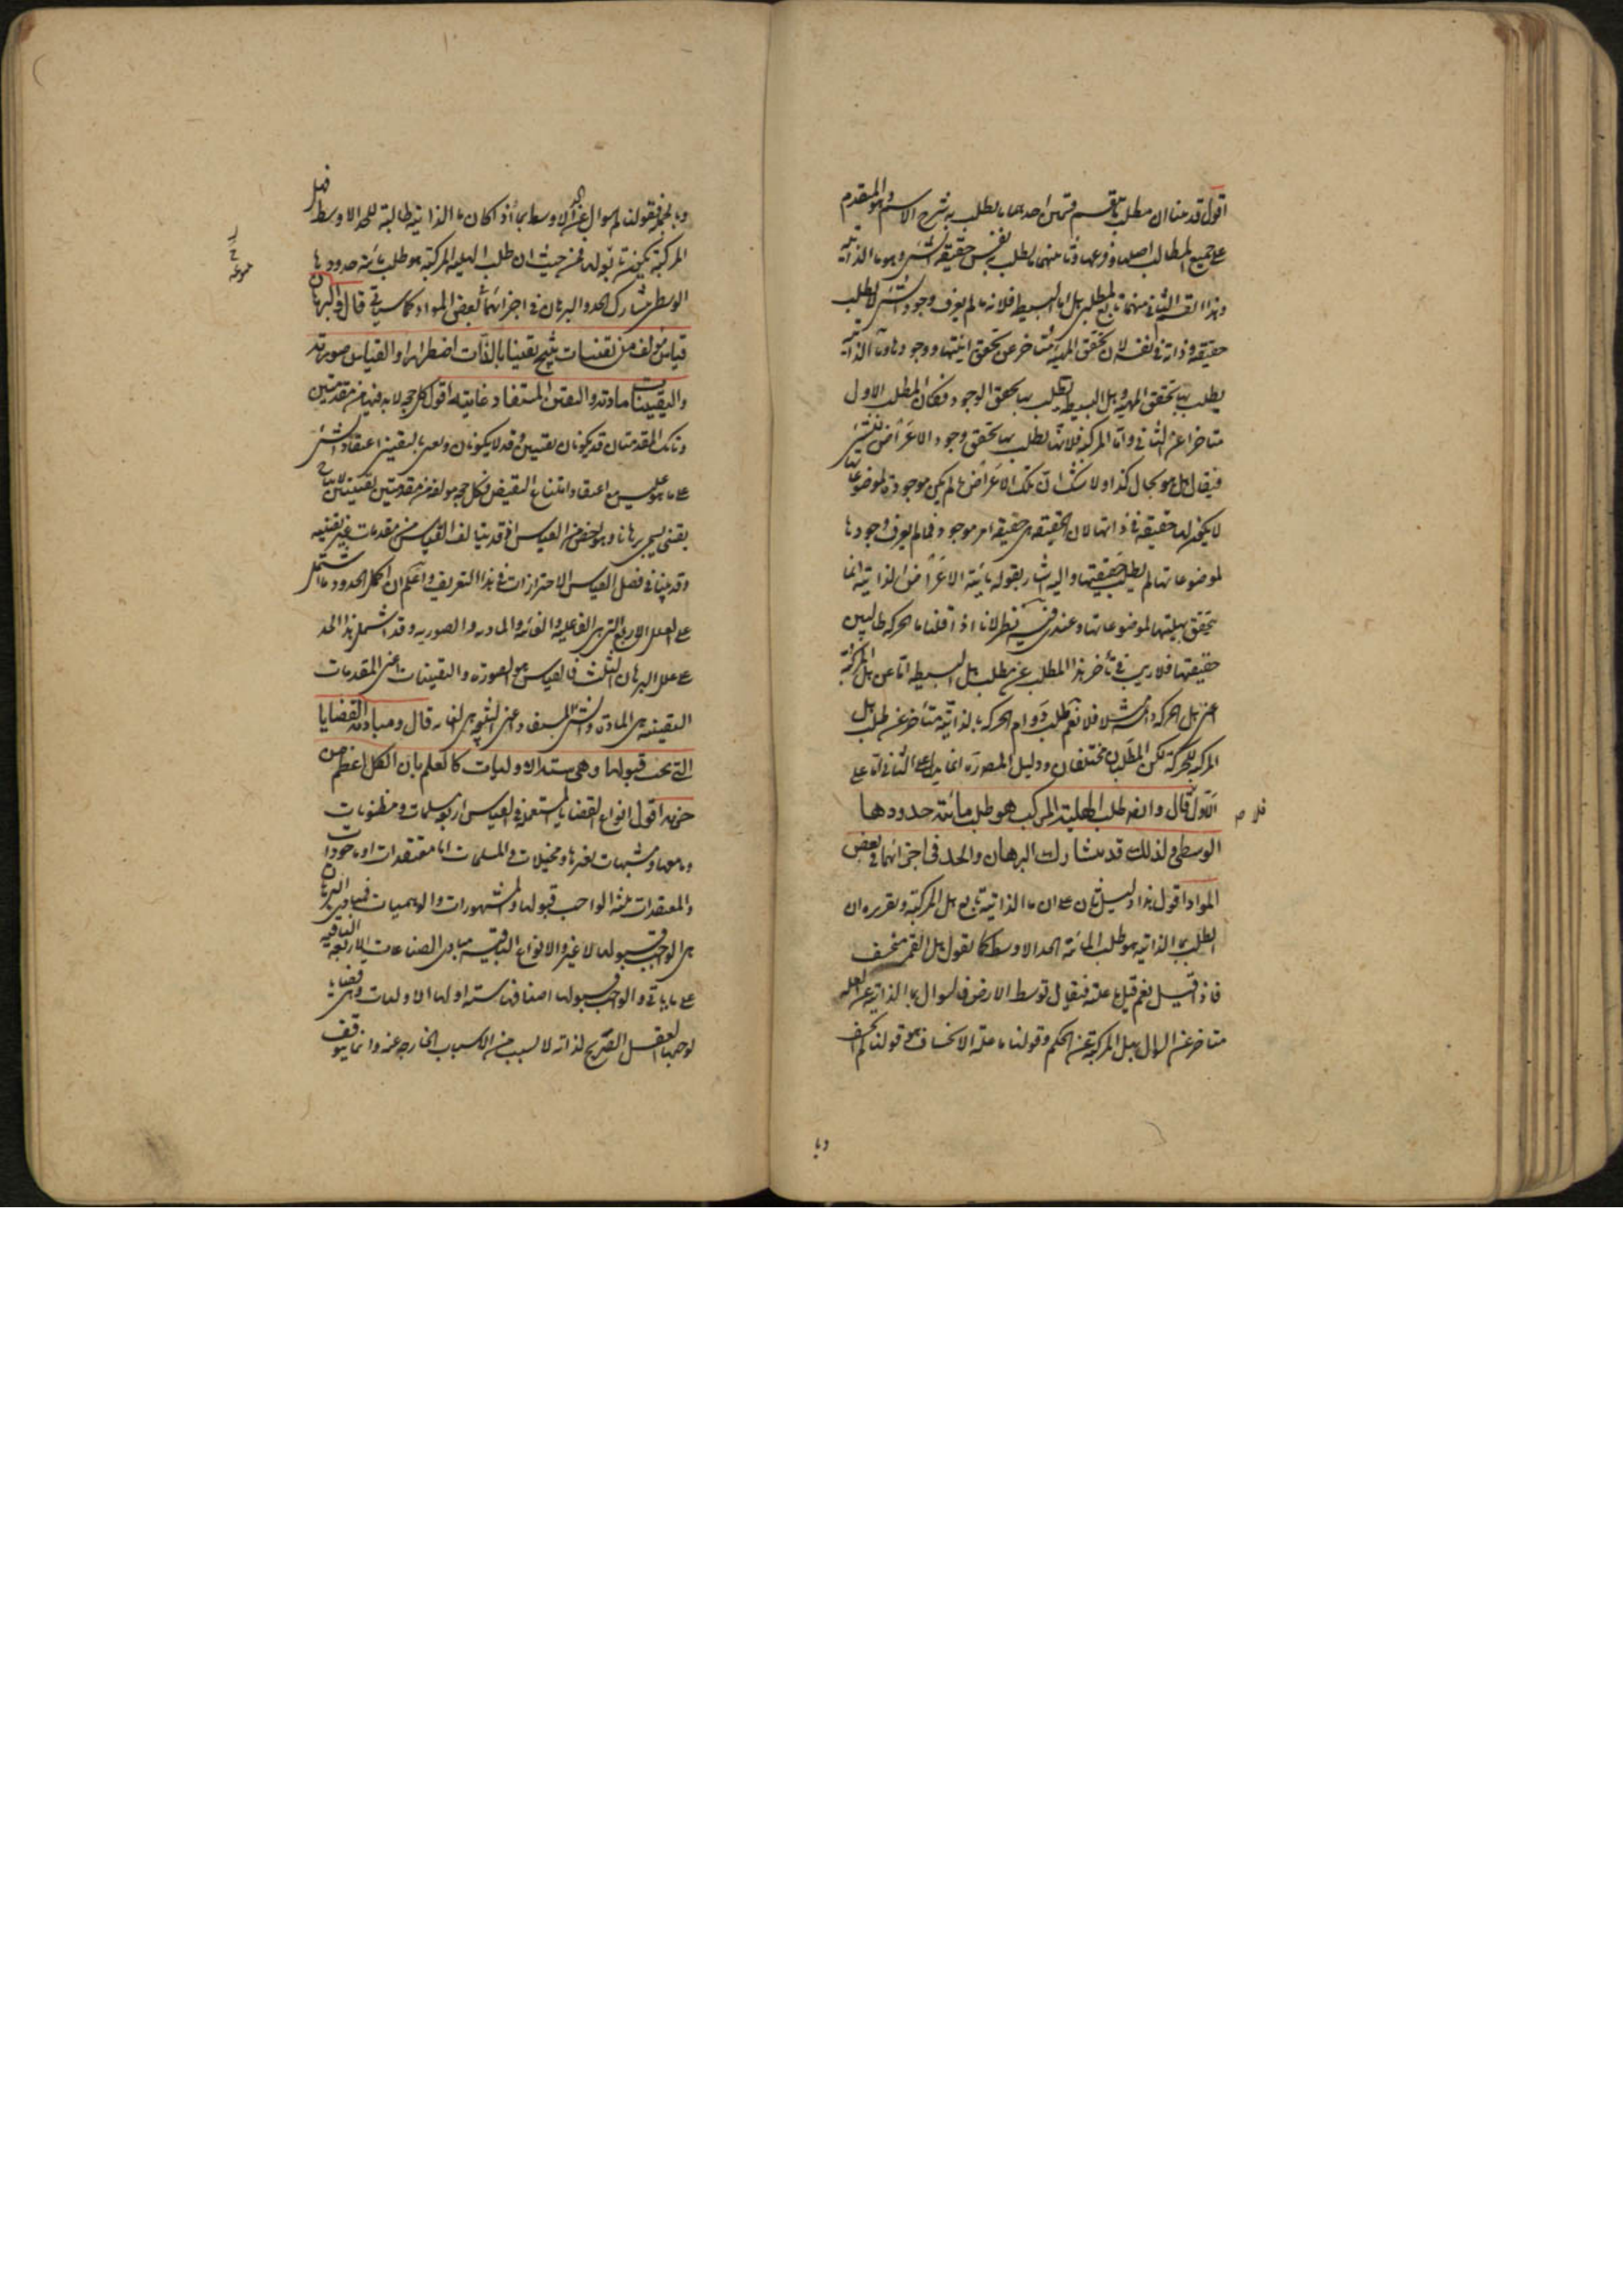 اقول قد بينا ان مطلب ما ينقسم قسمين احدهما ما يطلب به شرح الاسم وهو المقدم
على جميع المطالب اصلها وفروعها وثانيهما ما يطلب به نفس حقيقة الشئ وهو ما الذاتية
وهذا القسم الثانى منهما تابع لمطلبى هل اما البسيطة فلانه ما لم يعرف وجود الشئ لا يطلب
حقيقته وذاته فى نفسه لان تحقق المهية متاخر عن تحقق انيتها ووجودها وما الذاتية
يطلب بها تحقق المهية وهل البسيطة يطلب بها تحقق الوجود فكان المطلب الاول
متاخرا عن الثانى واما المركبة فلانها يطلب بها تحقق وجود الاعراض للشئ
فيقال هل هو بحال كذا ولا شك ان تلك الاعراض ما لم يكن موجودة لموضوعاتها
لا يكون لها حقيقة فى ذاتها لان الحقيقة هى حقيقة امر موجود فما لم يعرف وجودها
لموضوعاتها لم يطلب حقيقتها واليه اشار بقوله مائية الاعراض الذاتية انما
يتحقق بهليتها لموضوعاتها وعندى فيه نظر لانا اذا قلنا ما الحركة طالبين
حقيقتها فلا ريب فى تأخر هذا المطلب عن مطلب هل البسيطة اما عن هل المركبة
اعنى هل الحركة دائمة مثلا فلا نعم طلب دوام الحركة بالذاتية متأخر عن طلب هل
المركبة للحركة لكن المطلبان مختلفان ودليل المص ره انما يدل على الثانى لا على
الاول قال وايضا طلب الهلية المركبة هو طلب مائية حدودها
الوسطى ولذلك قد يشارك البرهان والحد فى اجزائهما فى بعض
المواد اقول هذا دليل ثان على ان ما الذاتية تابع هل المركبة وتقريره ان
الطلب بما الذاتية هو طلب لمائية الحد الاوسط كما نقول هل القمر منخسف
فاذا قيل نعم قيل ما علته فيقال توسط الارض فالسؤال بما الذاتية عن العلة
متاخر عن السؤال بهل المركبة عن الحكم وقولنا ما علة الانخساف هو قولنا لم انخسف
وبا
وبالجملة فقولنا لم سوال عن الاوسط بما اذ كان ما الذاتية طالبة للحد الاوسط فهل
المركبة يكون تابع لها فمن حيث ان طلب الهلية المركبة هو طلب مائية حدودها
الوسطى يشارك الحد والبرهان فى اجزائهما فى بعض المواد كما سياتى قال والبرهان
قياس مؤلف من يقينيات ينتج يقينيا بالذات اضطرارا والقياس صورته
واليقينيات مادته واليقين المستفاد غايته اقول كل حجة لا بد فيها من مقدمتين
وتانك المقدمتان قد يكونان يقينيين وقد لا يكونان ونعنى باليقين اعتقاد الشئ
على ما هو عليه مع اعتقاد امتناع النقيض فكل حجة مولفة من مقدمتين يقينيتين لانتاج
يقينى يسمى برهانا وهو اخص من القياس اذ قد يتالف القياس من مقدمات غير يقينية
وقد بينا فى فصل القياس الاحترازات فى هذا التعريف واعلم ان اكمل الحدود ما اشتمل
على العلل الاربع التى هى الفاعلية والغائية والمادية والصورية وقد اشتمل هذا الحد
على علل البرهان الثلث فالقياس هو الصورة واليقينيات اعنى المقدمات
اليقينية هى المادة والشئ المستفاد اعنى النتيجة هى الغاية قال ومبادئه القضايا
التى يجب قبولها وهى ستة الاوليات كالعلم بان الكل اعظم من
جزئه اقول انواع القضايا المستعملة فى القياس اربعة مسلمات ومظنونات
وما معها ومشبهات بغيرها ومخيلات والمسلمات اما معتقدات او ماخوذات
والمعتقدات ثلثة الواجب قبولها والمشهورات والوهميات فمبادى البرهان
هى الواجب قبولها لا غير والانواع الباقية مبادى الصناعات الاربعة الباقية
على ما ياتى والواجب قبولها اصنافها ستة اولها الاوليات وهى قضايا
يوجبها العقل الصريح لذاته لا لسبب من الاسباب الخارجة عنه وانما يتوقف